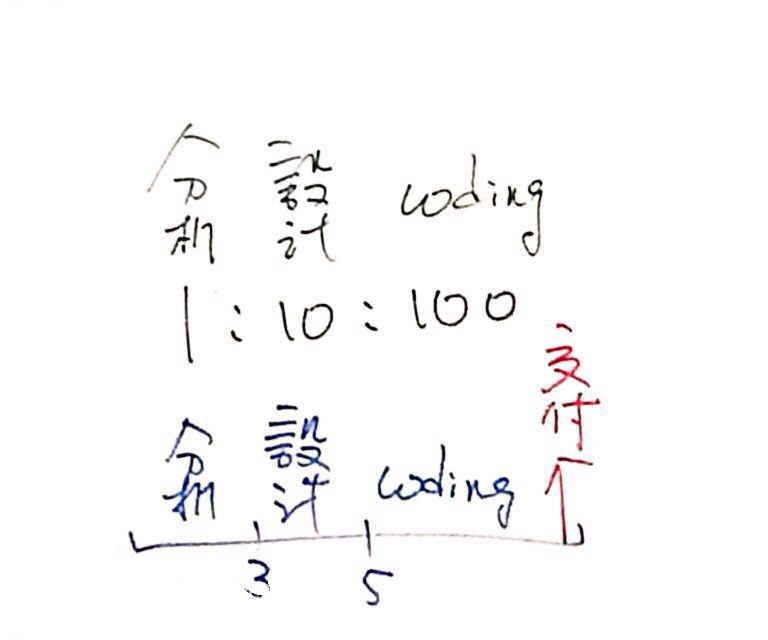 分析 設計 coding
1 : 10 : 100
分析 設計 coding 交付
3 5